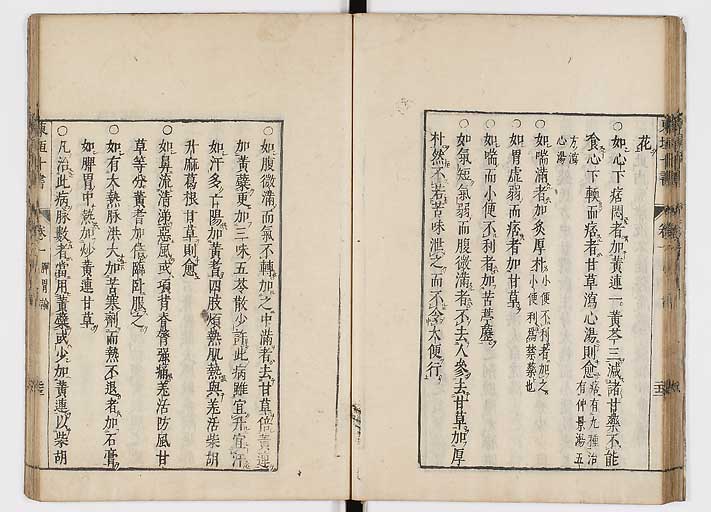 花
○如心下痞悶者加黃連一黃芩三減諸甘藥不能
食心下軟而痞者甘草瀉心湯則愈痞有九種治
有仲景湯五
方瀉
心湯
○如喘滿者加炙厚朴小便不利者加之
小便利爲禁藥也
○如胃虛弱而痞者加甘草
○如喘而小便不利者加苦葶藶
○如氣短氣弱而腹微滿者不去人參去甘草加厚
朴然不若苦味泄之而不令大便行
○如腹微滿而氣不轉加之中滿者去甘草倍黃連
加黃蘗更加三味五苓散少許此病雖宜升宜汗
如汗多亡陽加黃耆四肢煩熱肌熱與羌活柴胡
升麻葛根甘草則愈
○如鼻流清涕惡風或項脊膂強痛羌活防風甘
草等分黃耆加倍臨臥服之
○如有大熱脉洪大加苦寒劑而熱不退者加石膏
如脾胃中熱加炒黃連甘草
○凡治此病脉數者當用黃蘗或少加黃連以柴胡
東垣十書
卷一
脾胃論